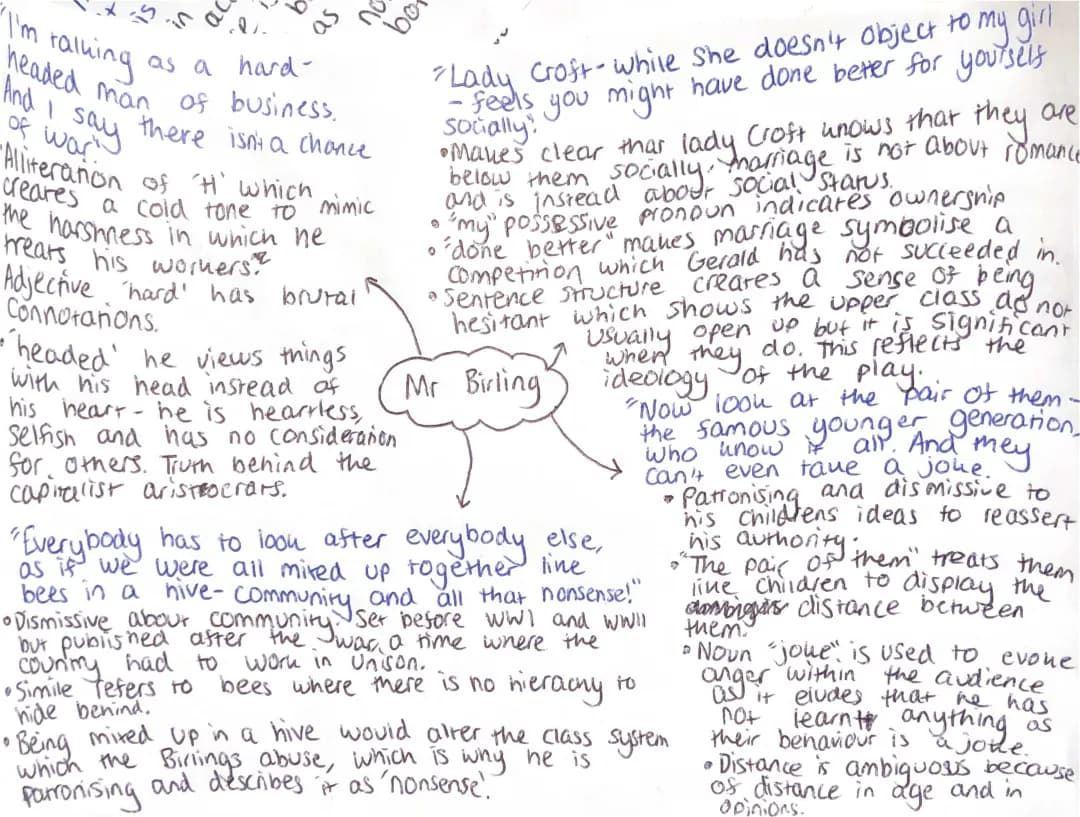 "I'm talking as a hard-
headed man of business.
And I say there isn't a chance
of war"
Alliteration of 'H' which
creates a cold tone to mimic
the harshness in which he
treats his workers.
Adjective 'hard' has brutal
Connotations.
• 'headed' he views things
with his head instead of
his heart - he is heartless,
selfish and has no consideration
for others. Truth behind the
capitalist aristocrats.
"Lady Croft - while she doesn't object to my girl
- feels you might have done better for yourself
socially".
• Makes clear that lady Croft knows that they are
below them socially, marriage is not about romance
and is instead about social status.
• "my" possessive pronoun indicates ownership
• "done better" makes marriage symbolise a
competition which Gerald has not succeeded in.
• Sentence structure creates a sense of being
hesitant which shows the upper class do not
usually open up but it is significant
when they do. This reflects the
ideology of the play.
Mr Birling
"Now look at the pair of them -
the famous younger generation,
who know it all. And they
can't even take a joke.
• Patronising and dismissive to
his childrens ideas to reassert
his authority.
• "The pair of them" treats them
like children to display the
distance between
them.
• Noun "joke" is used to evoke
anger within the audience
as it eludes that he has
not learnt anything as
their behaviour is a joke.
• Distance is ambiguous because
of distance in age and in
opinions.
"Everybody has to look after everybody else,
as if we were all mixed up together like
bees in a hive - community and all that nonsense!"
• Dismissive about community. Set before WW1 and WWII
but published after the war, a time where the
country had to work in unison.
• Simile refers to bees where there is no hierachy to
hide behind.
• Being mixed up in a hive would alter the class system
which the Birlings abuse, which is why he is
patronising and describes it as 'nonsense'.